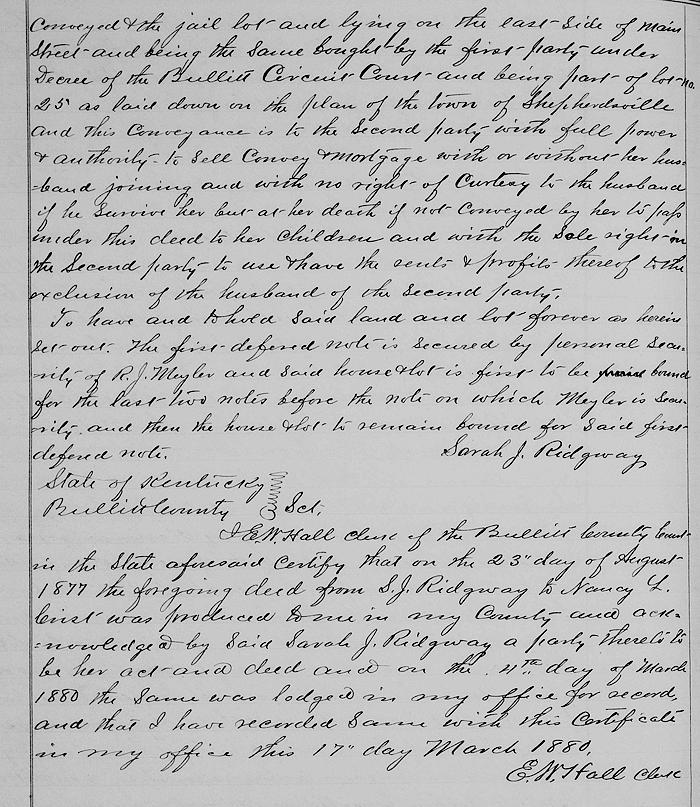 Conveyed & the jail lot and lying on the east side of main
Street and being the same bought by the first party under
Decree of the Bullitt Circuit Court and being part of lot no.
25 as laid down on the plan of the town of Shepherdsville
and this Conveyance is to the Second party with full power
& authority to sell Convey & mortgage with or without her hus-
-band joining and with no right of Curtesy to the husband
if he survive her but at her death if not Conveyed by her to pass
under this deed to her Children and with the Sole right in
the Second party to use & have the rents & profits thereof to the
exclusion of the husband of the Second party.
To have and to hold said land and lot forever as herein
set out. The first defered note is secured by personal secu-
-rity of R. J. Meyler and said house & lot is first to be bound
for the last two notes before the note on which Meyler is Secu-
-rity and then the house & lot to remain bound for said first
defered note. Sarah J. Ridgway
State of Kentucky
Bullitt County Sct.
I E. W. Hall Clerk of the Bullitt County Court
in the State aforesaid Certify that on the 23" day of August
1877 the foregoing deed from S. J. Ridgway to Nancy L.
Crist was produced to me in my County and ack-
-nowledged by Said Sarah J. Ridgway a party thereto to
be her act and deed and on the 4th day of March
1880 the Same was lodged in my office for record,
and that I have recorded Same with this Certificate
in my office this 17" day March 1880.
E. W. Hall Clerk